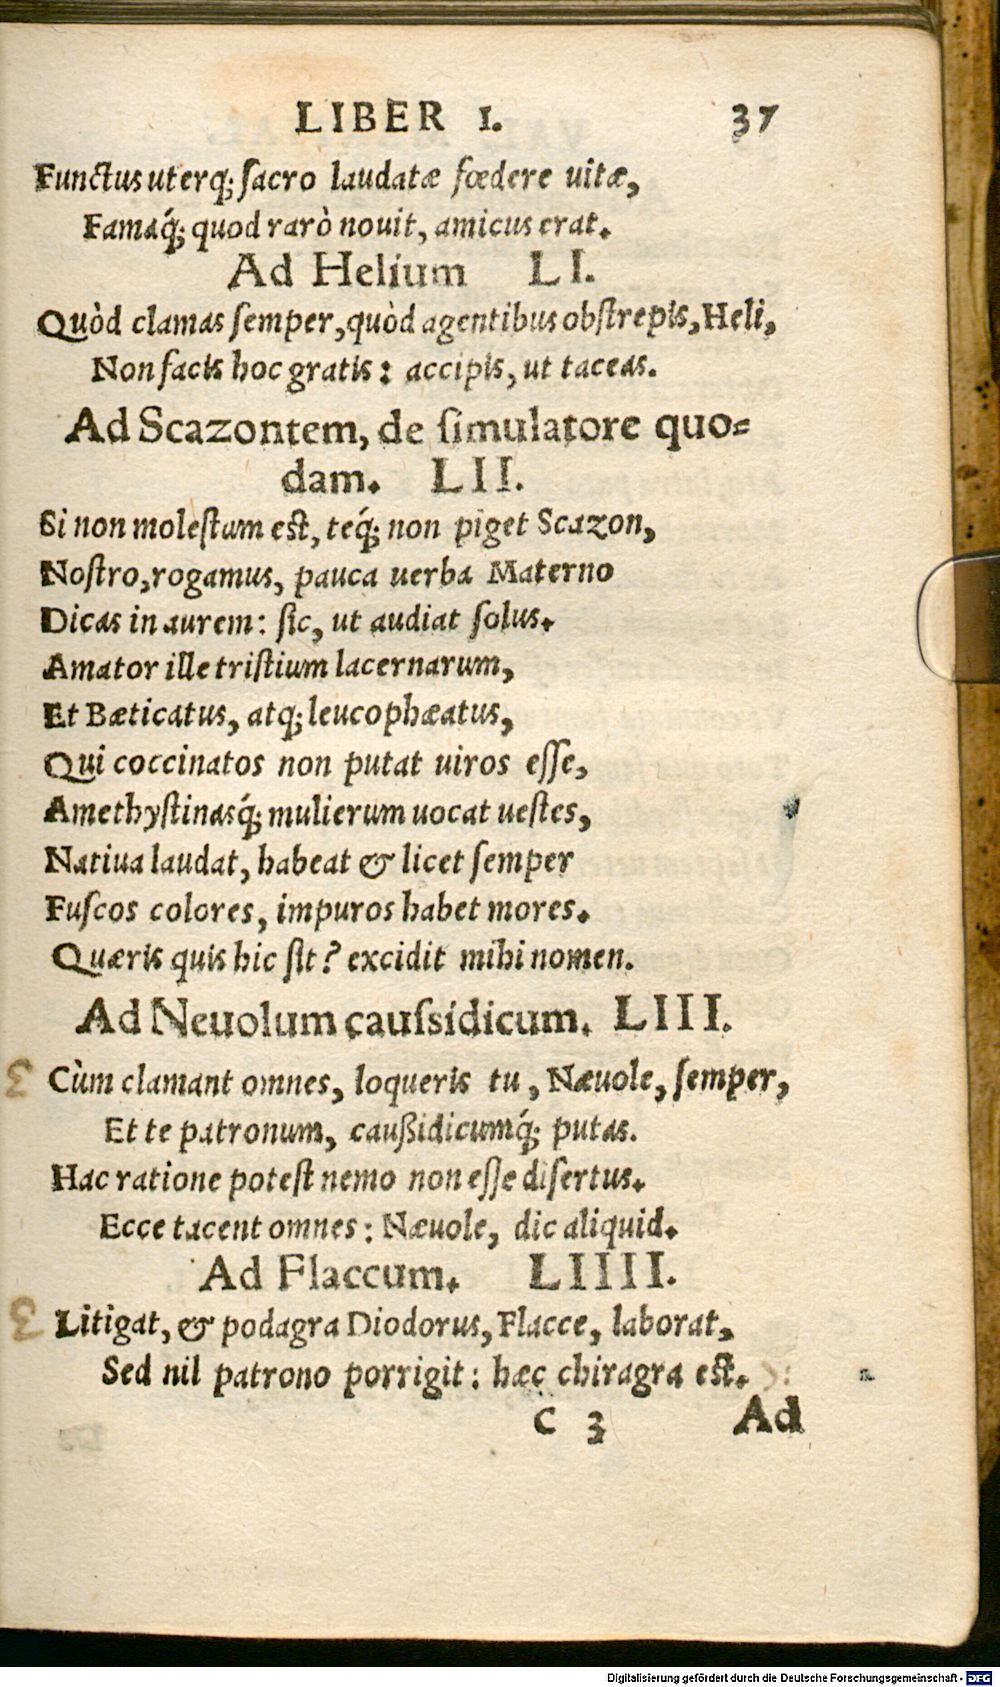 LIBER I. 37
Functus uterq; sacro laudatæ fœdere uitæ,
Famaq́; quod rarò nouit, amicus erat.
Ad Helium LI.
Quòd clamas semper, quòd agentibus obstrepis, Heli,
Non facis hoc gratis: accipis, ut taceas.
Ad Scazontem, de simulatore quo=
dam. LII.
Si non molestum est, teq́; non piget Scazon,
Nostro, rogamus, pauca uerba Materno
Dicas in aurem: sic, ut audiat solus.
Amator ille tristium lacernarum,
Et Bæticatus, atq; leucophæatus,
Qui coccinatos non putat uiros esse,
Amethystinasq́; mulierum uocat uestes,
Natiua laudat, habeat & licet semper
Fuscos colores, impuros habet mores.
Quæris quis hic sit? excidit mihi nomen.
Ad Neuolum caussidicum. LIII.
3 Cùm clamant omnes, loqueris tu, Næuole, semper,
Et te patronum, caußidicumq́; putas.
Hac ratione potest nemo non esse disertus.
Ecce tacent omnes: Næuole, dic aliquid.
Ad Flaccum. LIIII.
3 Litigat, & podagra Diodorus, Flacce, laborat,
Sed nil patrono porrigit: hæc chiragra est.
C 3 Ad
Digitalisierung gefördert durch die Deutsche Forschungsgemeinschaft - DFG